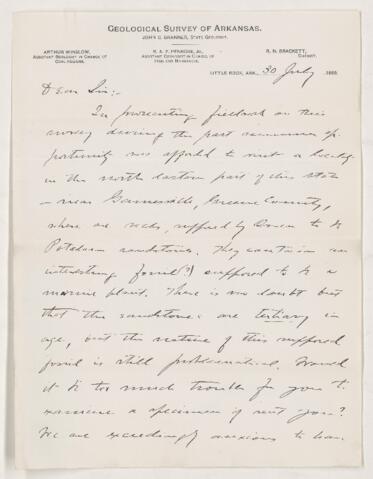 GEOLOGICAL SURVEY OF ARKANSAS.
JOHN C. BRANNER, STATE GEOLOGIST.
ARTHUR WINSLOW,
ASSISTANT GEOLOGIST IN CHARGE OF
COAL REGIONS.
R. A. F. PENROSE, JR.,
ASSISTANT GEOLOGIST IN CHARGE OF
IRON AND MANGANESE.
R. N. BRACKETT,
CHEMIST.
LITTLE ROCK, ARK., 30 July, 188
Dear Sir:-
In prosecuting fieldwork on this
survey during the past summer op-
portunity was afforded to visit a locality
in the north eastern part of this state
- near Gainesville, Greene County,
where are rocks, supposed by Owen to be
Potsdam sandstones. They contain an
interesting fossil (?) supposed to be a
marine plant. There is no doubt but
that the sandstones are tertiary in
age, but the nature of this supposed
fossil is still problematical. Would
it be too much trouble for you to
examine a specimen if sent you?
We are exceedingly anxious to